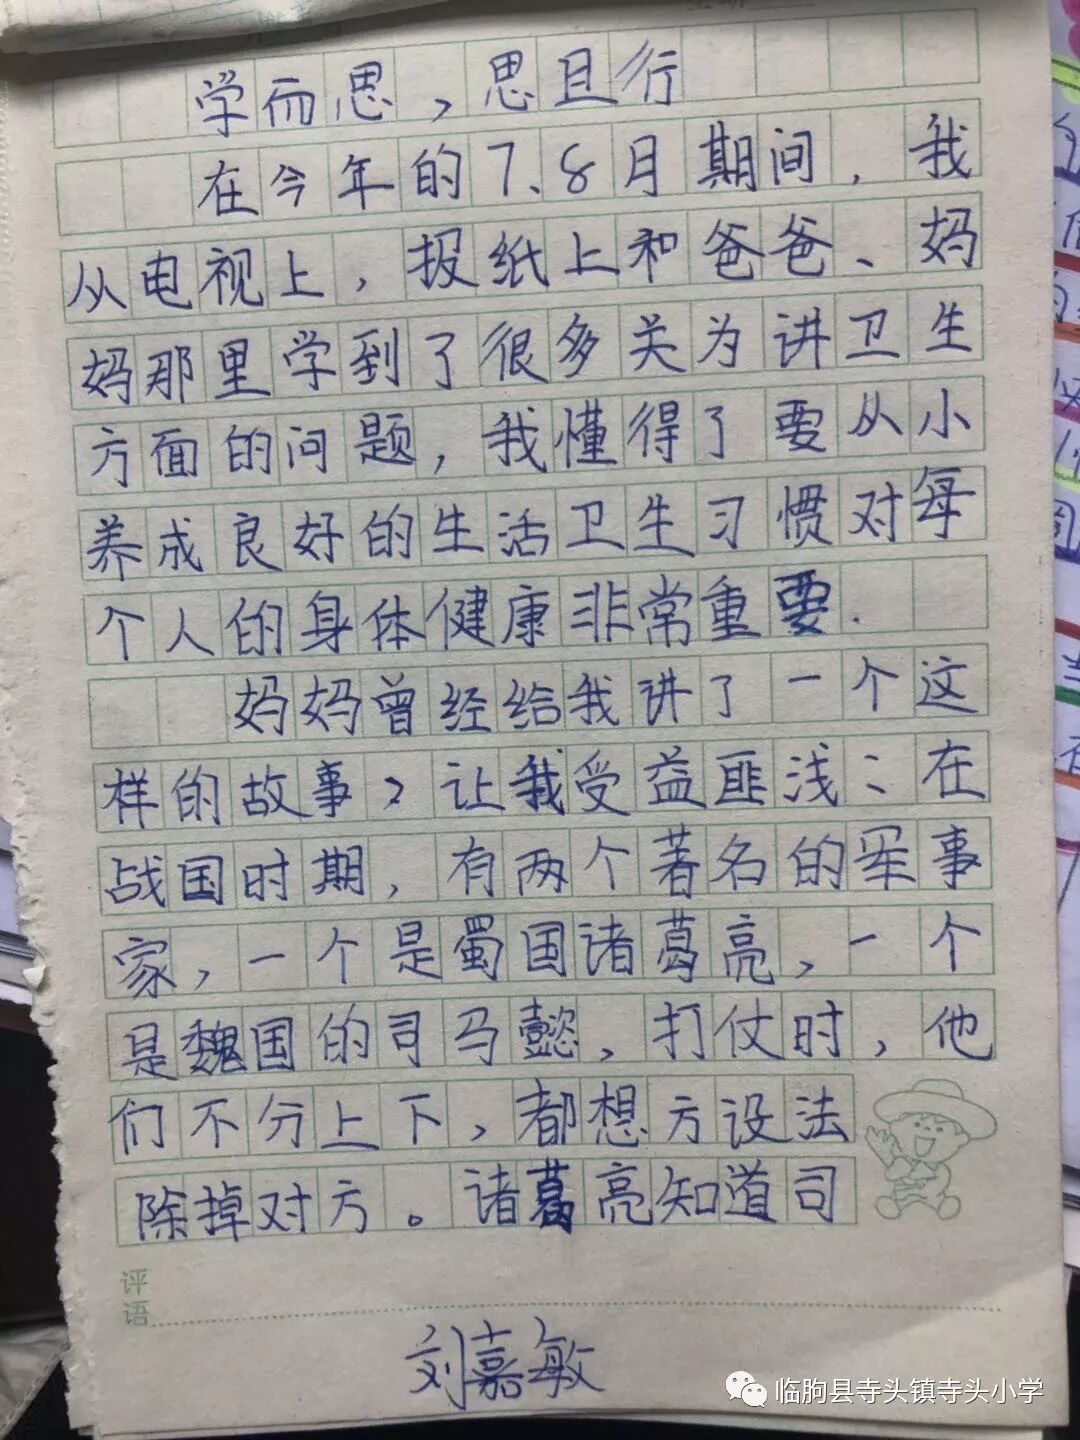 学而思，思且行
在今年的7、8月期间，我
从电视上，报纸上和爸爸、妈
妈那里学到了很多关为讲卫生
方面的问题，我懂得了要从小
养成良好的生活卫生习惯对每
个人的身体健康非常重要.
妈妈曾经给我讲了一个这
样的故事，让我受益匪浅：在
战国时期，有两个著名的军事
家，一个是蜀国诸葛亮，一个
是魏国的司马懿，打仗时，他
们不分上下，都想方设法
除掉对方。诸葛亮知道司
评语
刘嘉敏
临朐县寺头镇寺头小学